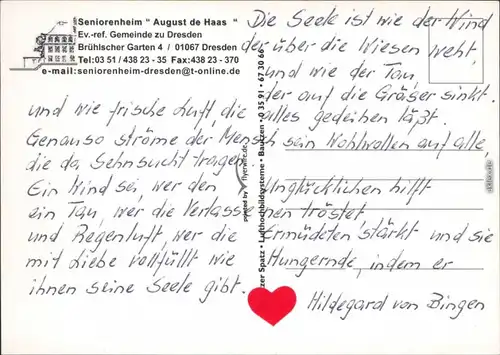 Seniorenheim " August de Haas "
Ev.-ref. Gemeinde zu Dresden
Brühlscher Garten 4 / 01067 Dresden
Tel:03 51/ 438 23 - 35 Fax:438 23 - 370
e-mail:seniorenheim-dresden@t-online.de
Die Seele ist wie der Wind
der über die Wiesen weht,
und wie der Tau,
der auf die Gräser sinkt.
und wie frische Luft, die alles gedeihen läßt.
Genauso ströme der Mensch sein Wohlwollen auf alle,
die da Sehnsucht tragen.
Ein Wind sei, wer den Unglücklichen hilft
ein Tau, wer die Verlassenen tröstet
und Regenluft, wer die Ermüdeten stärkt und sie
mit Liebe vollfüllt wie Hungernde, indem er
ihnen seine Seele gibt.
Hildegard von Bingen
printed by flyerwire.de
zer Spatz • Lufthochbildsysteme • Bautzen • 0 35 91 • 67 30 66